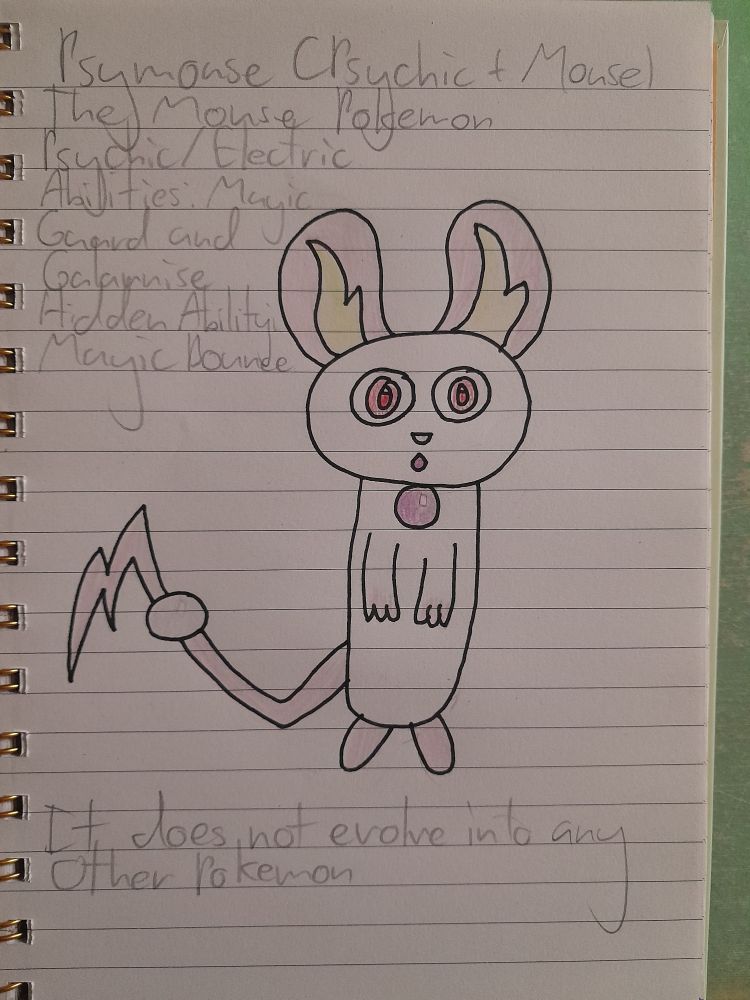 Psymouse (Psychic + Mouse)
The Mouse Pokemon
Psychic/Electric
Abilities: Magic
Gaurd and
Galavnise
Hidden Ability:
Magic Bounce
It does not evolve into any
Other Pokemon